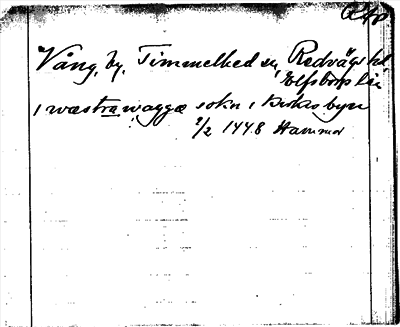 Vång, by, Timmelhed sn, Redvägs hd
Elfsborgs län
i wæstra waggæ sokn i byn
2/2 1448 Hammar